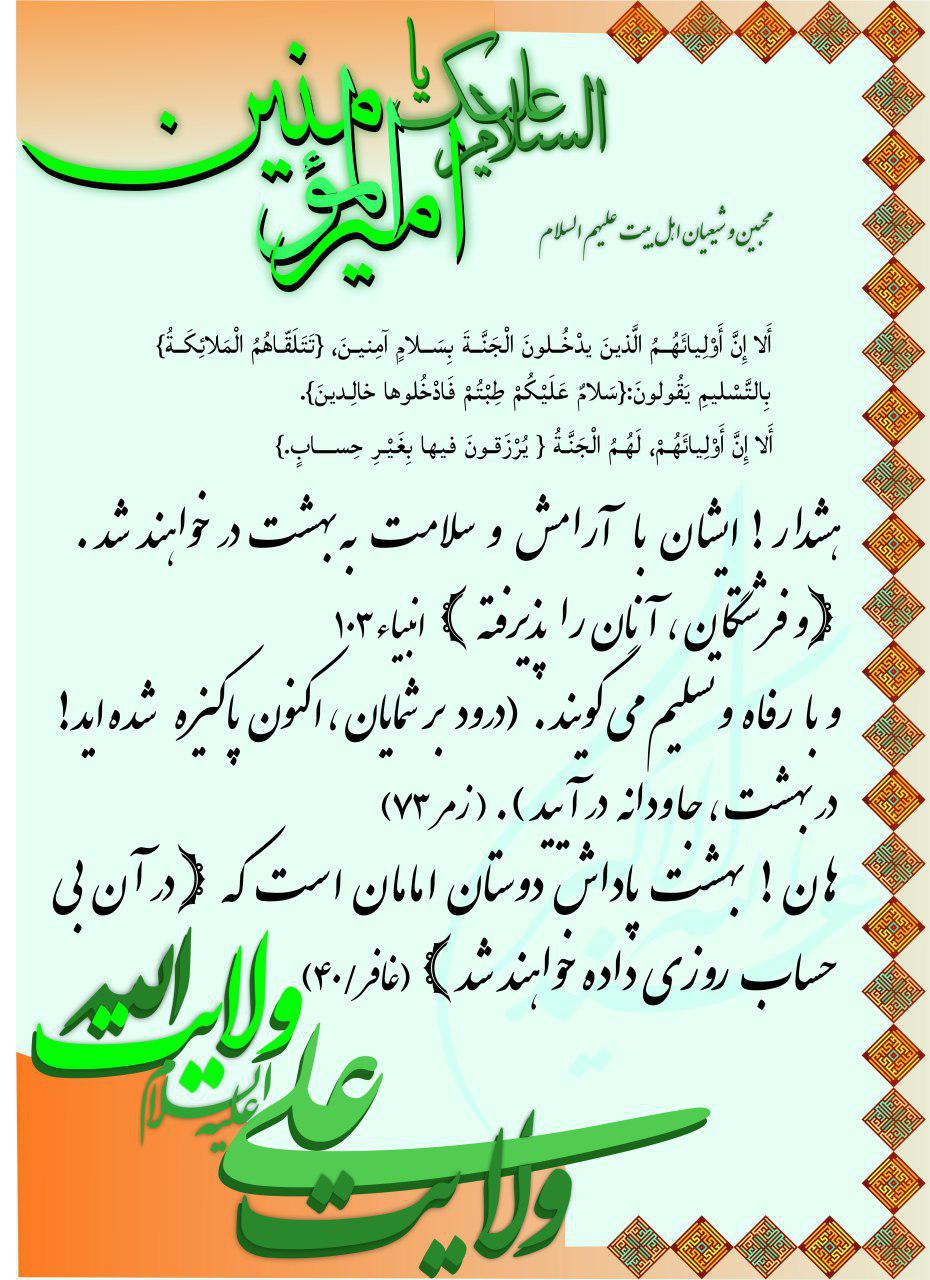 السلام علیک یا
امیرالمؤمنین
محبین و شیعیان اهل بیت علیهم السلام
أَلا إِنَّ أَوْلِیائَهُـمُ الَّذینَ یدْخُـلونَ الْجَنَّـةَ بِسَــلامٍ آمِنیـنَ، {تَتَلَقّاهُمُ الْمَلائِکَـةُ}
بِالتَّسْلیمِ یَقُولونَ:{سَلامٌ عَلَیْکُمْ طِبْتُمْ فَادْخُلوها خالِـدینَ}.
أَلا إِنَّ أَوْلِیائَهُمْ، لَهُمُ الْجَنَّـةُ { یُرْزَقـونَ فیها بِغَیْـرِ حِســـابٍ.}
هشدار ! ایشان با آرامش و سلامت به بهشت در خواهند شد .
﴿و فرشتگان ، آنان را پذیرفته ﴾ انبیاء ۱۰۳
و با رفاه و تسلیم می گویند . (درود بر شمایان ، اکنون پاکیزه شده اید!
در بهشت ، جاودانه درآیید ) . (زمر ۷۳)
هان ! بهشت پاداش دوستان امامان است که ﴿در آن بی
حساب روزی داده خواهند شد﴾ (غافر/۴۰)
ولایت الله
ولایت علی علیه السلام